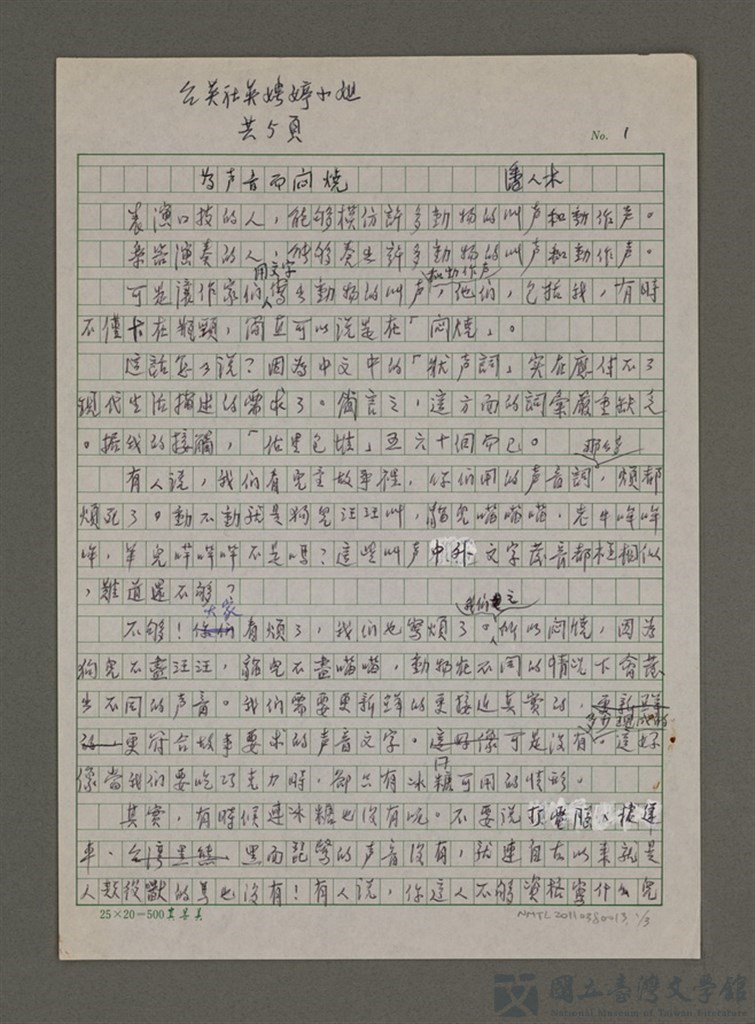 共5頁
No. 1
為声音而悶燒 潘人木
表演口技的人，能够模仿許多動物的叫声和動作声。
樂器演奏的人，能够奏出許多動物的叫声和動作声。
用文字 和動作声
可是讓作家們寫出動物的叫声，他們，包括我，有時
不僅卡在瓶頸，簡直可以說是在「悶燒」。
這話怎么說？因為中文中的「狀声詞」實在應付不了
現代生活描述的需求了。簡言之，這方面的詞彙嚴重缺乏
。据我的接觸，「估里包堆」五六十個而已。
那些
有人說，我們看兒童故事裡，你們用的声音詞，煩都
煩死了。動不動就是狗兒汪汪叫，貓兒喵喵喵，老牛哞哞
哞，羊兒咩咩咩不是嗎？這些叫声中外文字發音都極相似
，難道還不够？
大家 我們
不够！你們看煩了，我們也寫煩了。所以悶燒，因為
狗兒不盡汪汪，貓兒不盡喵喵，動物在不同的情況下會發
出不同的声音。我們需要更新鮮的更接近真實的，更新鮮
的更符合故事要求的声音文字。這好像可是沒有。這好
像當我們要吃巧克力時，却只有冰糖可用的情形。
其實，有時候連冰糖也沒有呢。不要說電腦、捷運
車、台灣黑熊、黑面琵鷺的声音沒有，就連自古以來就是
人類役獸的馬也沒有！有人說，你這人不够資格寫什么兒
25×20=500
NMTL20110380013 1/3
國立臺灣文學館
National Museum of Taiwan Literature